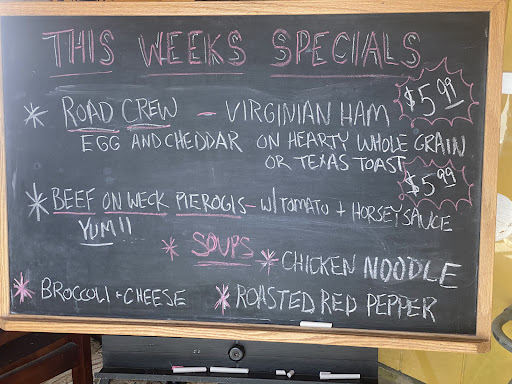 THIS WEEKS SPECIALS
* ROAD CREW - VIRGINIAN HAM $5.99
EGG AND CHEDDAR ON HEARTY WHOLE GRAIN
OR TEXAS TOAST
$5.99
* BEEF ON WECK PIEROGIS - W/ TOMATO + HORSEY SAUCE
YUM!!
* SOUPS * CHICKEN NOODLE
* BROCCOLI + CHEESE * ROASTED RED PEPPER